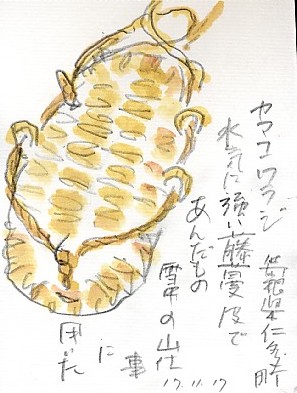 ヤマコワラジ 島根県仁多町
水気に強い藤蔓皮で
あんだもの
雪中の山仕
事
に
用いた
17.11.17